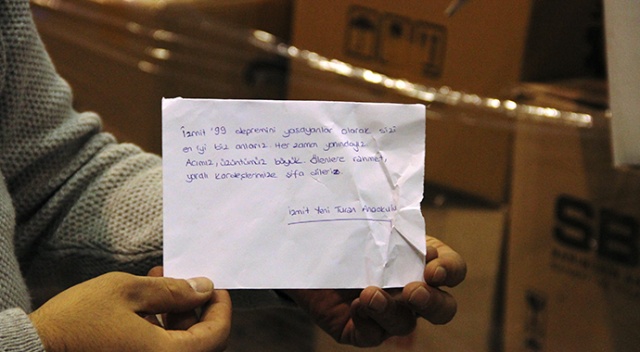 İzmit '99 depremini yaşayanlar olarak sizi
en iyi biz anlarız. Her zaman yanındayız
Acımız, üzüntümüz büyük. Ölenlere rahmet,
yaralı kardeşlerimize şifa dileriz.
İzmit Yeni Turan Anaokulu
SB